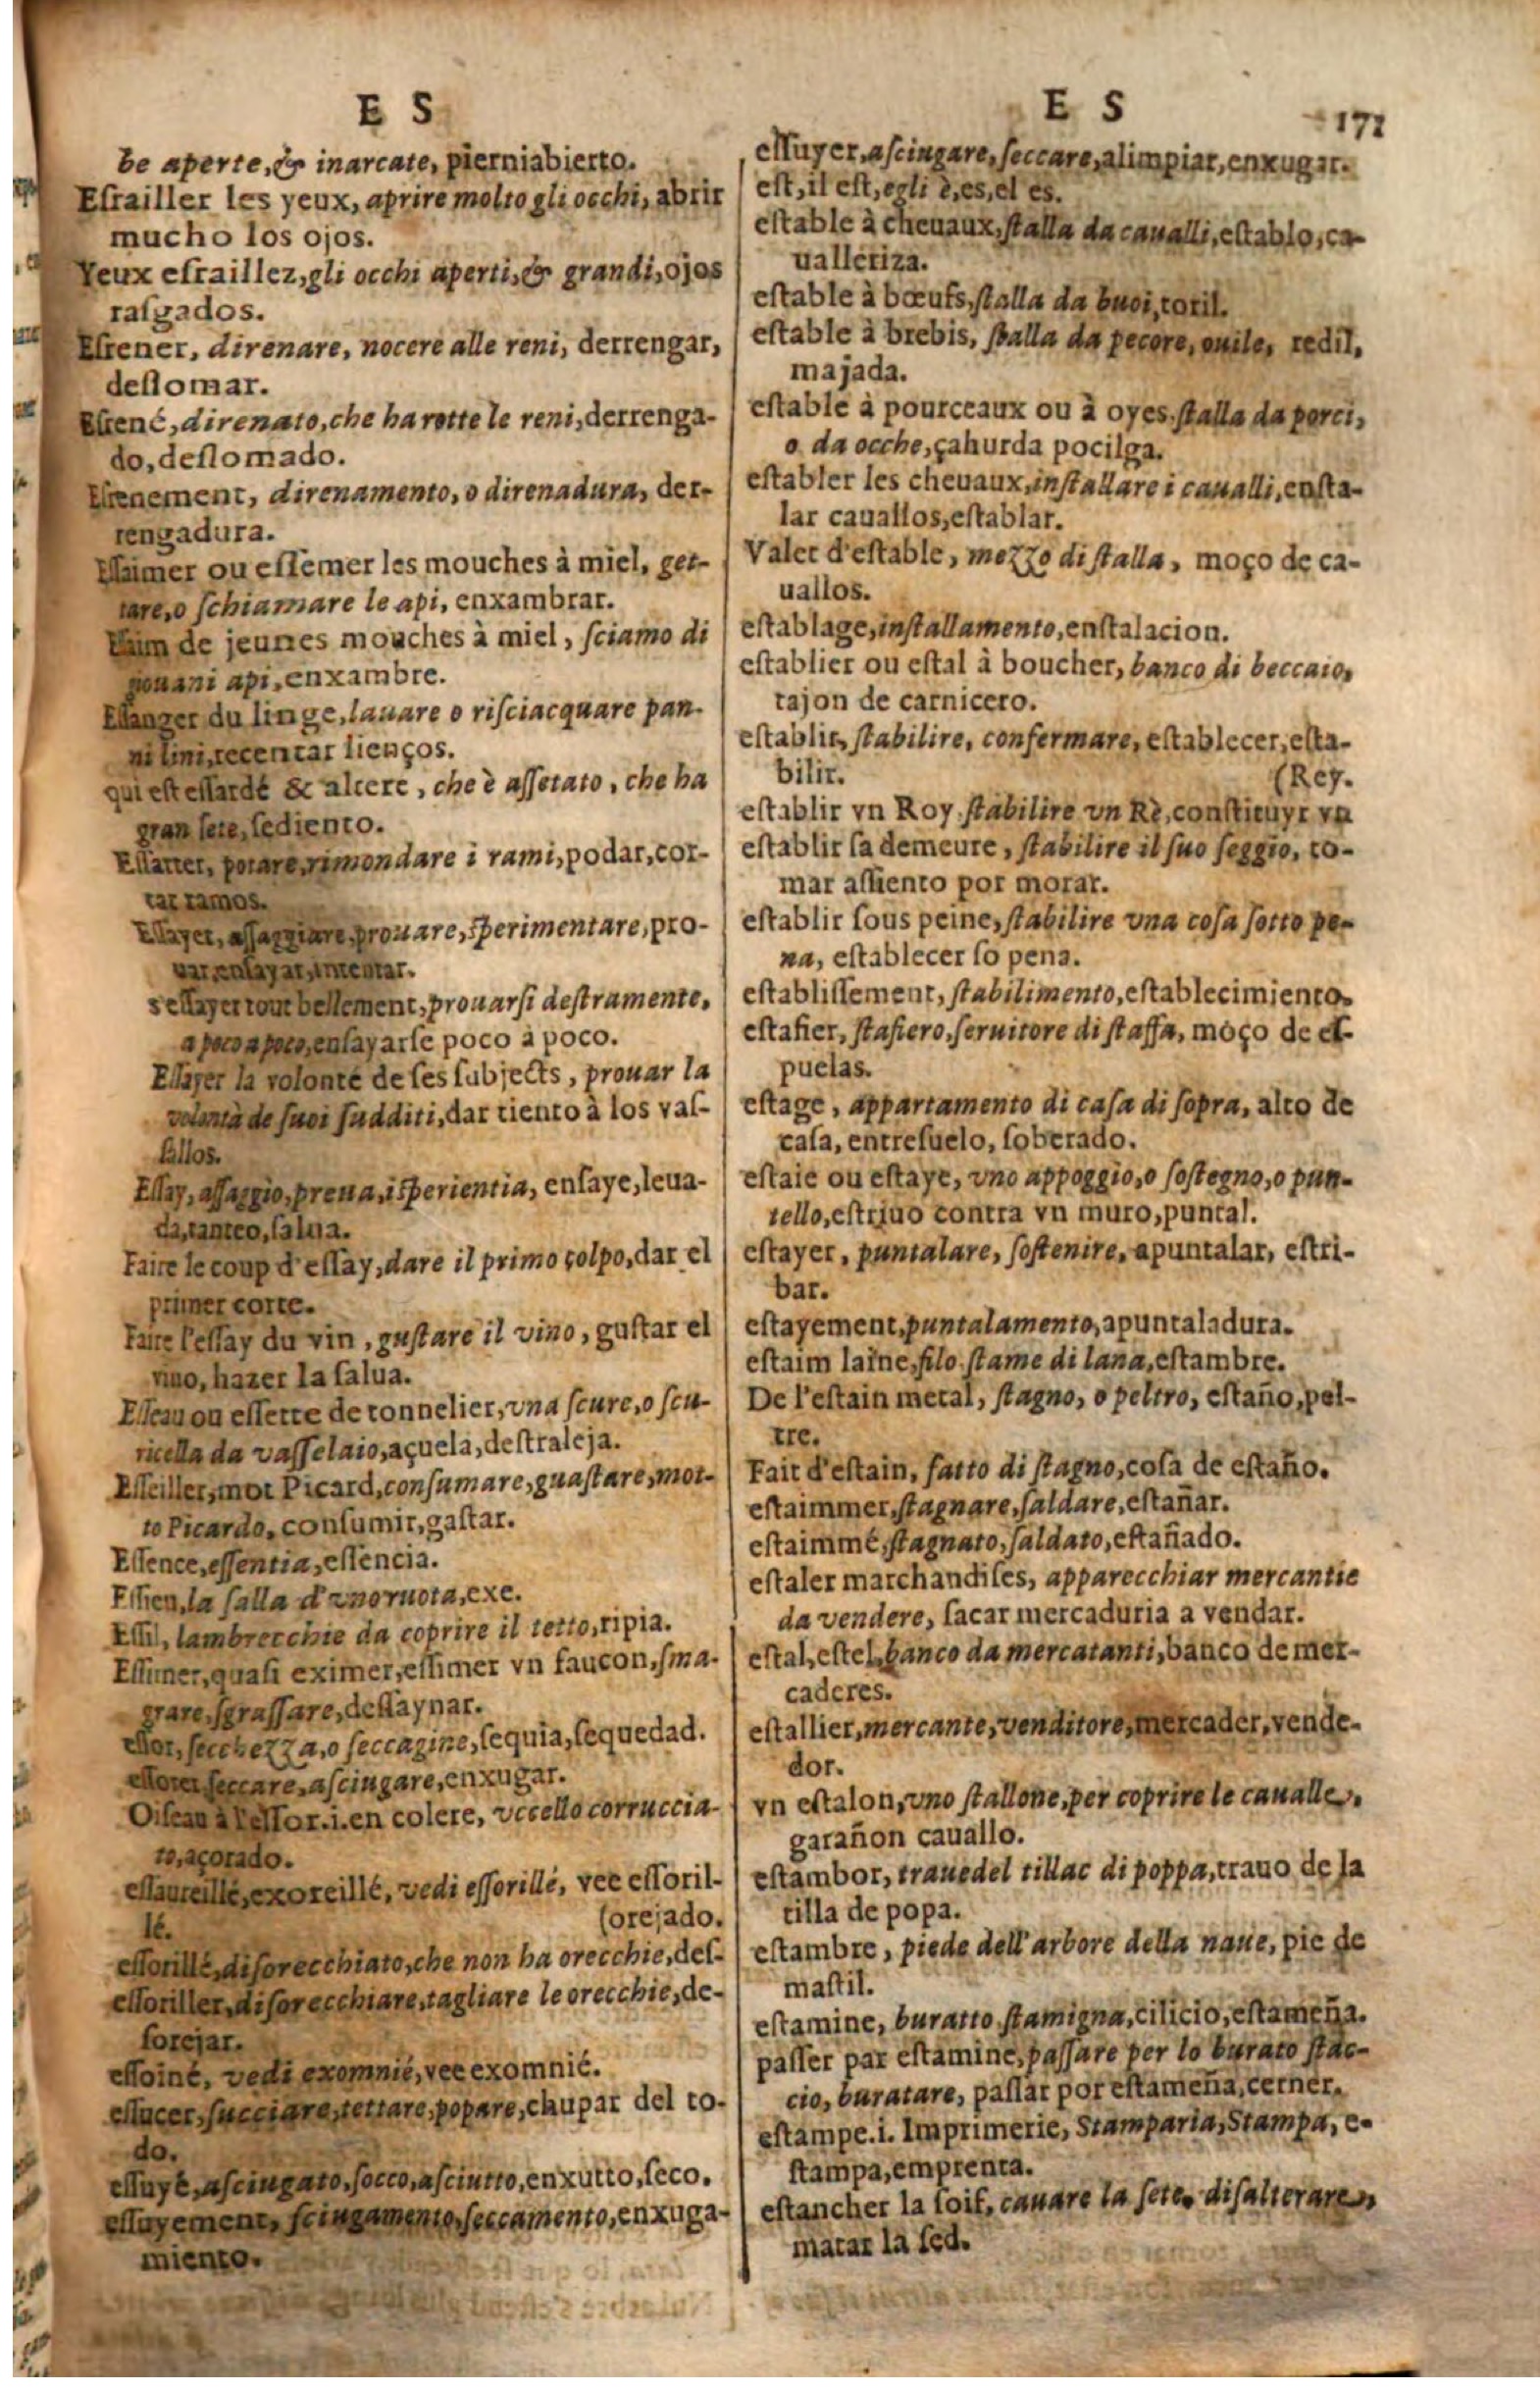 E S
be aperte, & inarcate, pierniabierto.
Eſrailler les yeux, aprire molto gli occhi, abrir
mucho los ojos.
Yeux eſraillez, gli occhi aperti, & grandi, ojos
raſgados.
Eſrener, direnare, nocere alle reni, derrengar,
deſlomar.
Eſrené, direnato, che ha rotte le reni, derrenga-
do, deſlomado.
Eſrenement, direnamento, o direnadura, der-
rengadura.
Eſſaimer ou eſſemer les mouches à miel, get-
tare, o ſchiamare le api, enxambrar.
Eſſaim de jeunes mouches à miel, ſciamo di
giouani api, enxambre.
Eſſanger du linge, lauare o riſciacquare pan-
ni lini, recentar lienços.
qui est eſſardé & altere, che è aſſetato, che ha
gran ſete, ſediento.
Eſſarter, potare, rimondare i rami, podar, cor-
tar ramos.
Eſſayer, aſſaggiare, prouare, ſperimentare, pro-
uar, enſayar, intentar.
s'eſſayer tout bellement, prouarſi deſtramente,
a poco a poco, enſayarſe poco à poco.
Eſſayer la volonté de ſes ſubjects, prouar la
volontà de ſuoi ſudditi, dar tiento à los vaſ-
ſallos.
Eſſay, aſſaggio, preua, iſperientia, enſaye, leua-
da, tanteo, ſalua.
Faire le coup d'eſſay, dare il primo colpo, dar el
primer corte.
Faire l'eſſay du vin, guſtare il vino, guſtar el
vino, hazer la ſalua.
Eſſeau ou eſſette de tonnelier, vna ſcure, o ſcu-
ricella da vaſſelaio, açuela, deſtraleja.
Eſſeiller, mot Picard, conſumare, guaſtare, mot-
to Picardo, conſumir, gaſtar.
Eſſence, eſſentia, eſſencia.
Eſſieu, la ſalla d'vno ruota, exe.
Eſſil, lambrecchie da coprire il tetto, ripia.
Eſſimer, quaſi eximer, eſſimer vn faucon, ſma-
grare, ſgraſſare, deſſaynar.
eſſor, ſecchezza, o ſeccagine, ſequia, ſequedad.
eſſorer ſeccare, aſciugare, enxugar.
Oiſeau à l'eſſor .i. en colere, vccello corruccia-
to, açorado.
eſſaureillé, exoreillé, vedi eſſorillé, vee eſſoril-
lé. (orejado.
eſſorillé, diſorecchiato, che non ha orecchie, deſ-
eſſoriller, diſorecchiare, tagliare le orecchie, de-
ſorejar.
eſſoiné, vedi exomnié, vee exomnié.
eſſucer, ſucciare, tettare, popare, chupar del to-
do.
eſſuyé, aſciugato, ſocco, aſciutto, enxutto, ſeco.
eſſuyement, ſciugamento, ſeccamento, enxuga-
miento.
E S 171
eſſuyer, aſciugare, ſeccare, alimpiar, enxugar.
eſt, il eſt, egli è, es, el es.
eſtable à cheuaux, ſtalla da caualli, eſtablo, ca-
ualleriza.
eſtable à bœufs, ſtalla da buoi, toril.
eſtable à brebis, ſtalla da pecore, ouile, redil,
majada.
eſtable à pourceaux ou à oyes, ſtalla da porci,
o da ocche, çahurda pocilga.
eſtabler les cheuaux, inſtallare i caualli, enſta-
lar cauallos, eſtablar.
Valet d'eſtable, mezzo di ſtalla, moço de ca-
uallos.
eſtablage, inſtallamento, enſtalacion.
eſtablier ou eſtal à boucher, banco di beccaio,
tajon de carnicero.
eſtablir, ſtabilire, confermare, eſtablecer, eſta-
bilir. (Rey.
eſtablir vn Roy ſtabilire vn Rè, conſtituyr vn
eſtablir ſa demeure, ſtabilire il ſuo ſeggio, to-
mar aſſiento por morar.
eſtablir ſous peine, ſtabilire vna coſa ſotto pe-
na, eſtablecer ſo pena.
eſtabliſſement, ſtabilimento, eſtablecimiento.
eſtafier, ſtafiero, ſeruitore di ſtaffa, moço de eſ-
puelas.
eſtage, appartamento di caſa di ſopra, alto de
caſa, entreſuelo, ſoberado.
eſtaie ou eſtaye, vno appoggio, o ſoſtegno, o pun-
tello, eſtriuo contra vn muro, puntal.
eſtayer, puntalare, ſoſtenire, apuntalar, eſtri-
bar.
eſtayement, puntalamento, apuntaladura.
eſtaim laine, filo ſtame di lana, eſtambre.
De l'eſtain metal, ſtagno, o peltro, eſtaño, pel-
tre.
Fait d'eſtain, fatto di ſtagno, coſa de eſtaño.
eſtaimmer, ſtagnare, ſaldare, eſtañar.
eſtaimmé, ſtagnato, ſaldato, eſtañado.
eſtaler marchandiſes, apparecchiar mercantie
da vendere, ſacar mercaduria a vendar.
eſtal, eſtel, banco da mercatanti, banco de mer-
caderes.
eſtallier, mercante, venditore, mercader, vende-
dor.
vn eſtalon, vno ſtallone, per coprire le caualle,
garañon cauallo.
eſtambor, traue del tillac di poppa, trauo de la
tilla de popa.
eſtambre, piede dell'arbore della naue, pie de
maſtil.
eſtamine, buratto ſtamigna, cilicio, eſtameña.
paſſer par eſtamine, paſſare per lo burato ſtac-
cio, buratare, paſſar por eſtameña, cerner.
eſtampe .i. Imprimerie, Stamparia, Stampa, e-
ſtampa, emprenta.
eſtancher la ſoif, cauare la ſete, diſalterare,
matar la ſed.